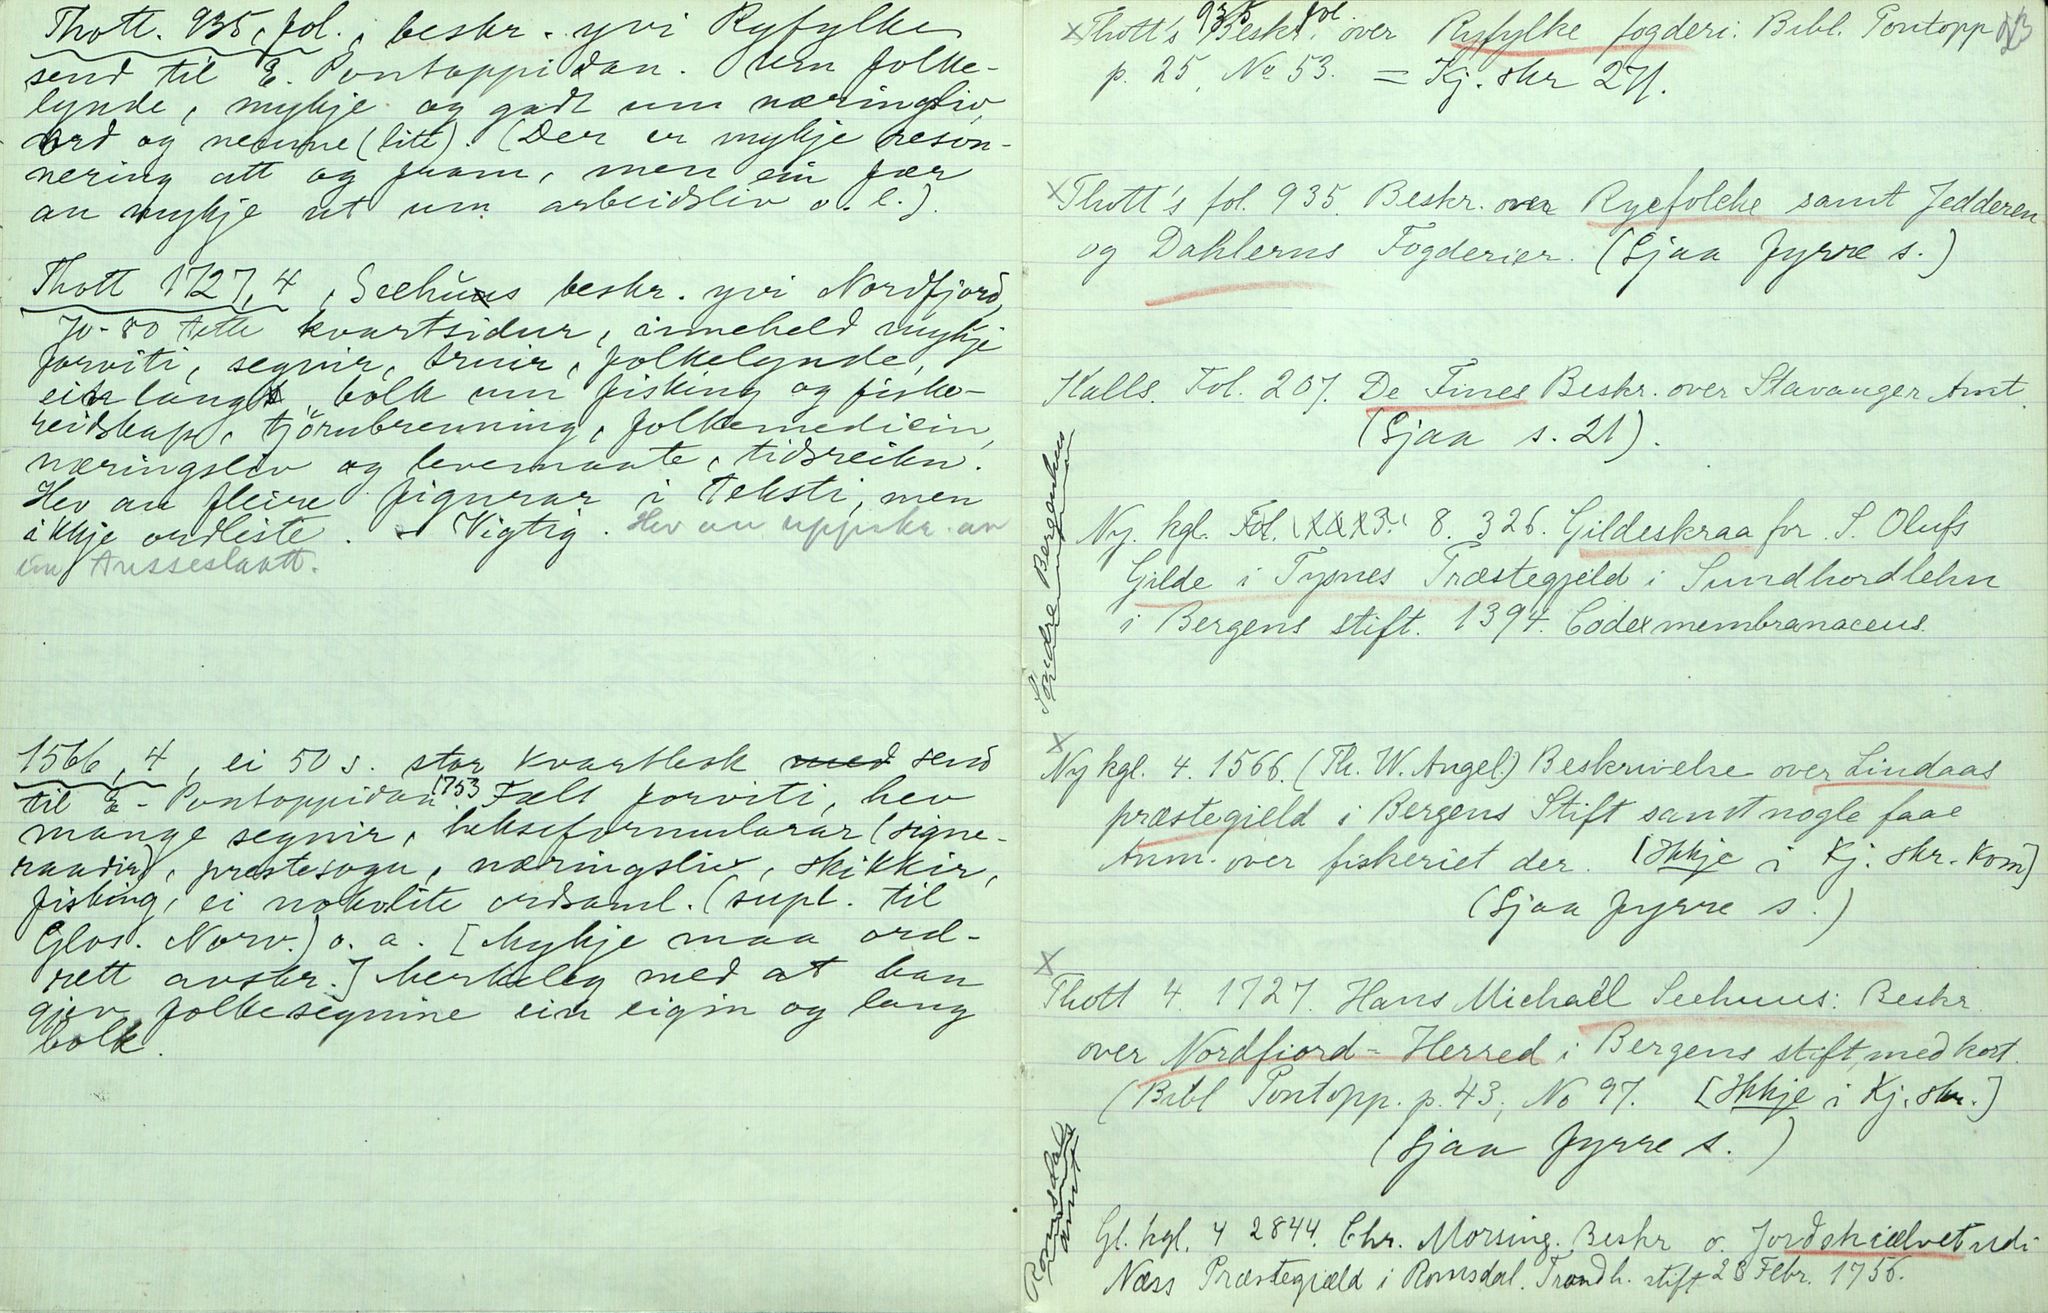 Thott. 935, fol., beskr. yvi Ryfylke
send til E. Pontoppidan. Um folke-
lynde, mykje og godt um næringsliv,
ord og nemne (lite). (Der er mykje reson-
nering att og fram, men ein fær
an mykje ut um arbeidsliv o. l.).
Thott 1727, 4, Seehuus beskr. yvi Nordfjord,
70-80 tette kvartsidur, inneheld mykje
forviti, segnir, truir, folkelynde,
ein lang bolk um fisking og fiske-
reidskap, tjörubrenning, folkemedicin,
næringsliv og levemaate, tidsreikn.
Hev au fleire figurar i teksti, men
ikkje ordliste. - Vigtig. Hev au uppskr. av
ein Tusseslaatt.
1566, 4, ei 50 s. stor kvartbok med send
til E. Pontoppidan 1753. Fælt forviti, hev
mange segnir, hekseformularar (signe-
raadir), prestesogu, næringsliv, skikkir,
fisking, ei nokolite ordsaml. (supl. til
Glos. Norv.) o. a. [Mykje maa ord-
rett avskr.] Merkeleg med at han
gjev folkesegnine ein eigin og lang
bolk.
Thott's 935 fol. Beskr. over Ryfylke fogderi. Bibl. Pontopp
p. 25, No 53. = Kj. skr 271.
Thott's fol. 935. Beskr. over Ryefolcke samt Jedderen
og Dahlerns Fogderier. (Sjaa fyrre s.)
Kalls. Fol. 207. De Fines Beskr. over Stavanger Amt.
(Sjaa s. 21).
Söndre Bergenhus
Ny. kgl. 8. 326. Gildeskraa for S. Olufs
Gilde i Tysnes Præstegjeld i Sundhordlehn
i Bergens stift. 1394. Codex membranaceus.
Ny kgl. 4. 1566. (Th. W. Angel.) Beskrivelse over Lindaas
præstegield i Bergens Stift samt nogle faae
Anm. over fiskeriet der. [Ikkje i Kj. skr. Kom]
(Sjaa fyrre s.)
Thott 4. 1727. Hans Michaël Seehuus: Beskr.
over Nordfiord-Herred i Bergens stift, med kort.
(Bibl Pontopp. p. 43, No 97. [Ikkje i Kj. skr.]
(Sjaa fyrre s. )
Romsdals amt
Gl. kgl. 4 2844. Chr. Morsing. Beskr o. Jordskiælvet udi
Næss Præstegiæld i Romsdal. Trondh. stift 28 Febr. 1756.